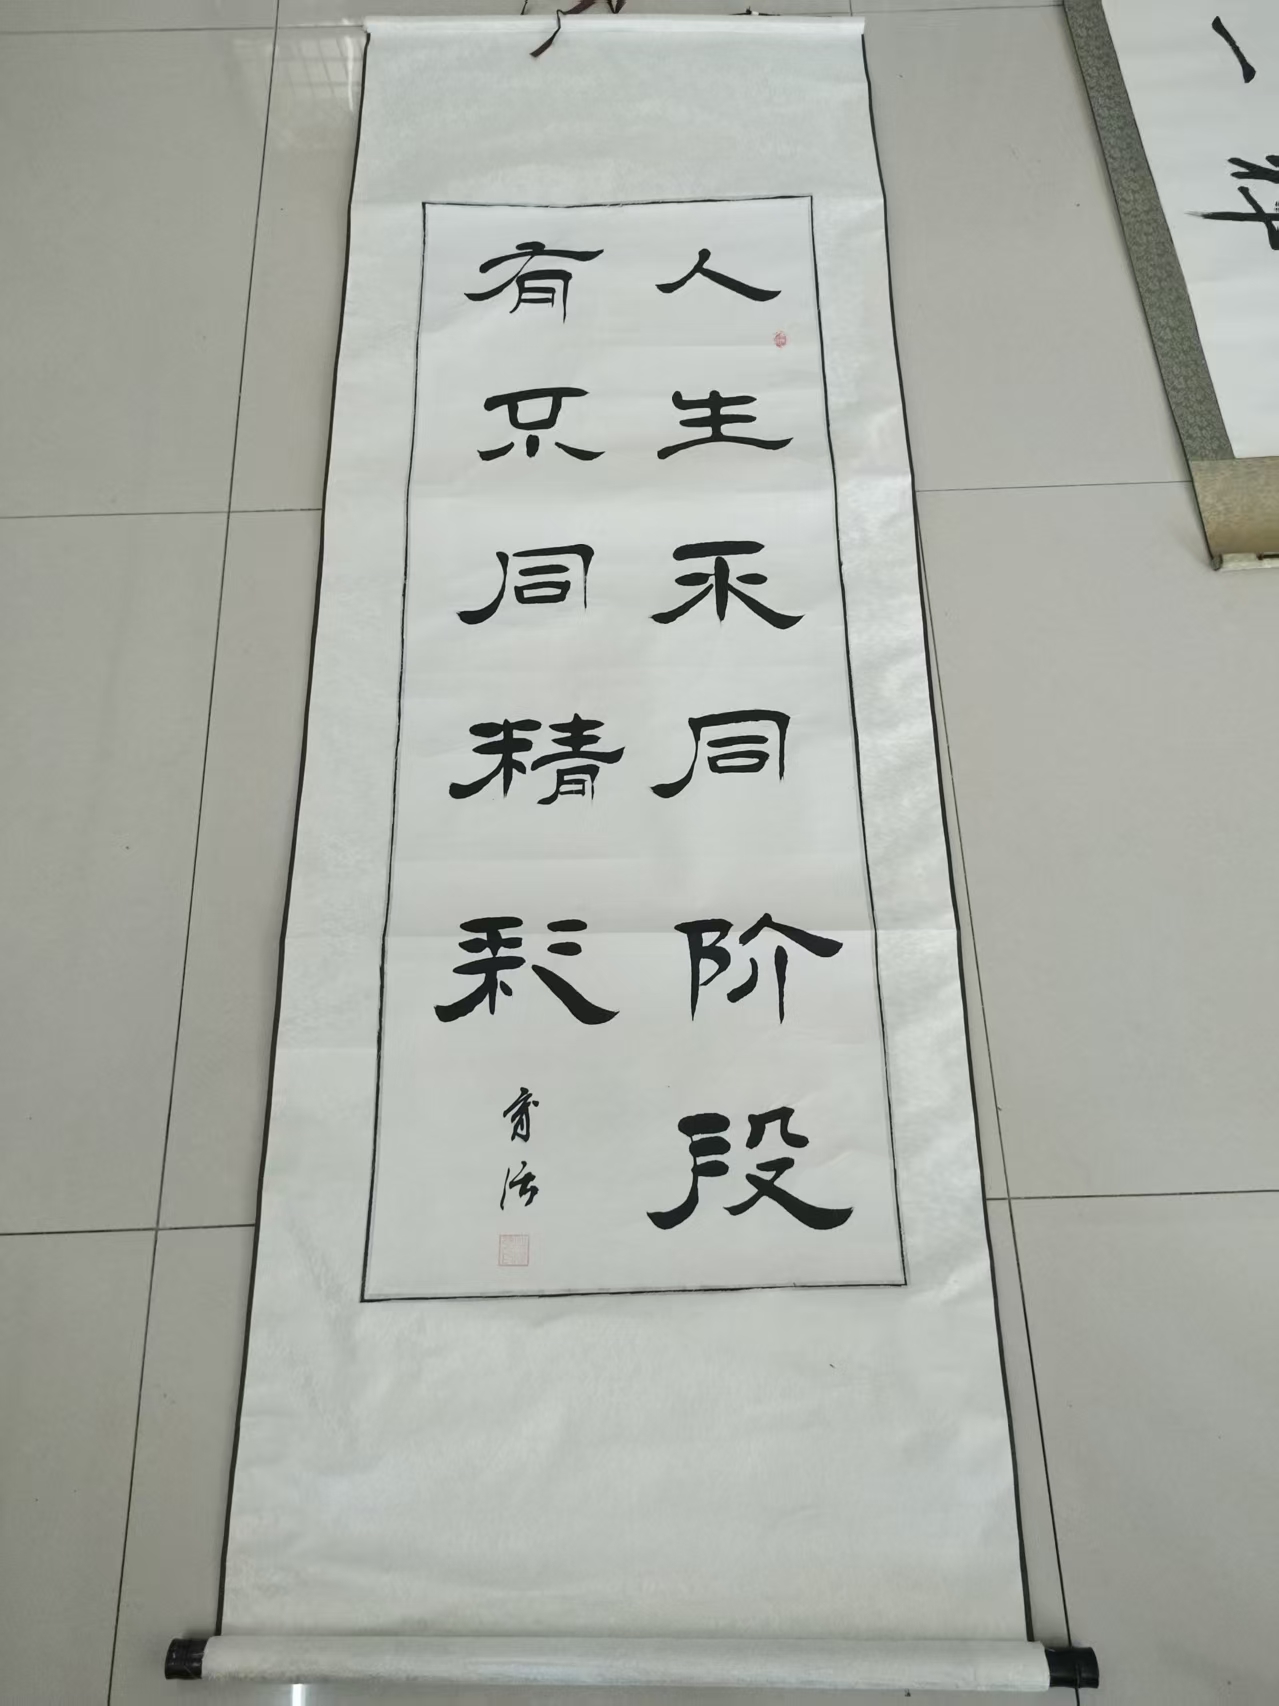 人生不同阶段
有不同精彩
一